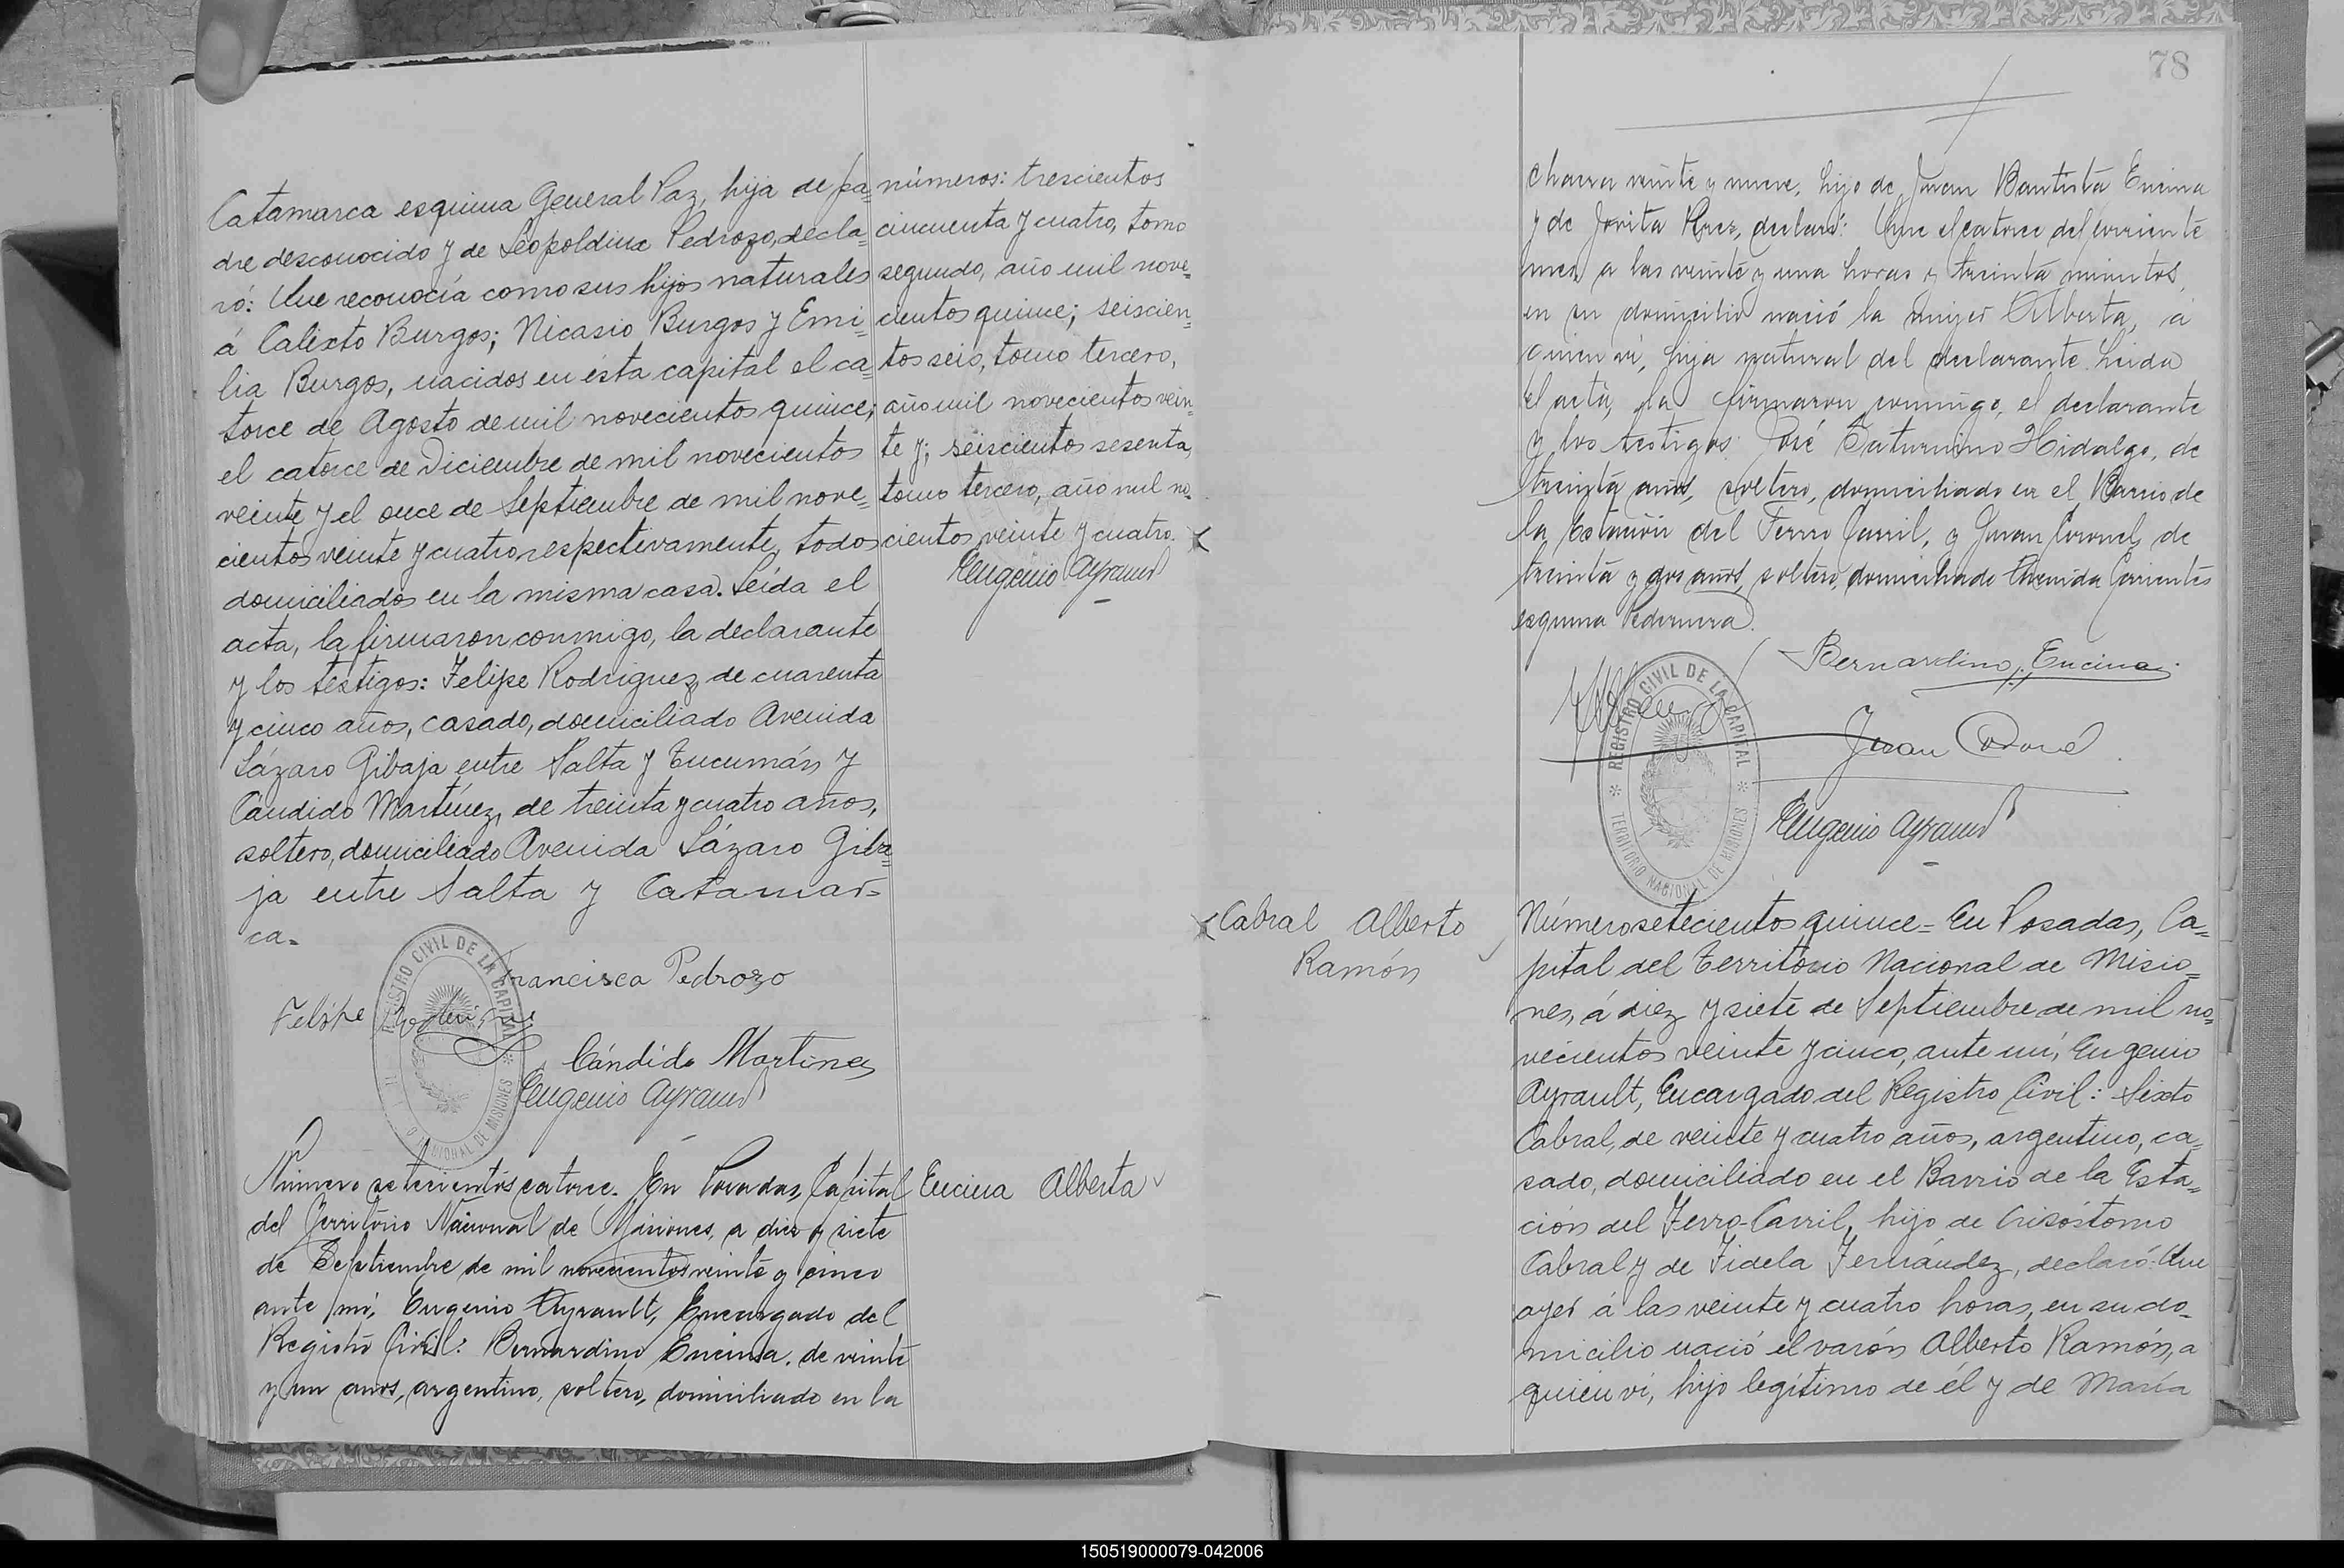 Catamarca esquina General Paz, hija de pa-
dre desconocido y de Leopoldina Pedrozo, decla-
ró: Que reconocía como sus hijos naturales
á Calixto Burgos; Nicasio Burgos y Emi-
lia Burgos, nacidos en ésta capital el ca-
torce de Agosto de mil novecientos quince;
el catorce de Diciembre de mil novecientos
veinte y el once de Septiembre de mil nove-
cientos veinte y cuatro respectivamente, todos
domiciliados en la misma casa. Leída el
acta, la firmaron conmigo, la declarante
y los testigos: Felipe Rodriguez, de cuarenta
y cinco años, casado, domiciliado Avenida
Lázaro Gibaja entre Salta y Tucumán y
Cándido Martínez, de treinta y cuatro años,
soltero, domiciliado Avenida Lázaro Giba-
ja entre Salta y Catamar-
ca.
Francisca Pedrozo
Felipe
Cándido Martinez
Eugenio Ayrault
REGISTRO CIVIL DE LA CAPITAL
NACIONAL DE MISIONES
números: trescientos
cincuenta y cuatro, tomo
segundo, año mil nove-
cientos quince; seiscien-
tos seis, tomo tercero,
año mil novecientos vein-
te y; seiscientos sesenta,
tomo tercero, año mil no-
cientos veinte y cuatro.
Eugenio Ayrault
Número setecientos catorce. En Posadas, Capital
del Territorio Nacional de Misiones, a diez y siete
de Septiembre de mil novecientos veinte y cinco
ante mí, Eugenio Ayrault, Encargado del
Registro Civil: Bernardino Encina, de veinte
y un años, argentino, soltero, domiciliado en la
Encina Alberta
78
chacra veinte y nueve, hijo de Juan Bautista Encina
y de Jovita Perez, declaró: Que el catorce del corriente
mes a las veinte y una horas y treinta minutos,
en su domicilio nació la mujer Alberta, á
quien ví, hija natural del declarante. Leida
el acta, la firmaron conmigo, el declarante
y los testigos: José Saturnino Hidalgo, de
treinta años, soltero, domiciliado en el Barrio de
la Estación del Ferro Carril, y Juan Coronel, de
treinta y dos años, soltero, domiciliado Avenida Corrientes
esquina Pedernera.
Bernardino Encina
Juan
Eugenio Ayrault
REGISTRO CIVIL DE LA CAPITAL
TERRITORIO NACIONAL DE MISIONES
Cabral Alberto
Ramón
Número setecientos quince = En Posadas, Ca-
pital del Territorio Nacional de Misio-
nes, á diez y siete de Septiembre de mil no-
vecientos veinte y cinco, ante mí, Eugenio
Ayrault, Encargado del Registro Civil: Sixto
Cabral, de veinte y cuatro años, argentino, ca-
sado, domiciliado en el Barrio de la Esta-
ción del Ferro-Carril, hijo de Crisóstomo
Cabral y de Fidela Fernández, declaró: Que
ayer á las veinte y cuatro horas, en su do-
micilio nació el varón Alberto Ramón, a
quien ví, hijo legítimo de él y de María
150519000079-042006